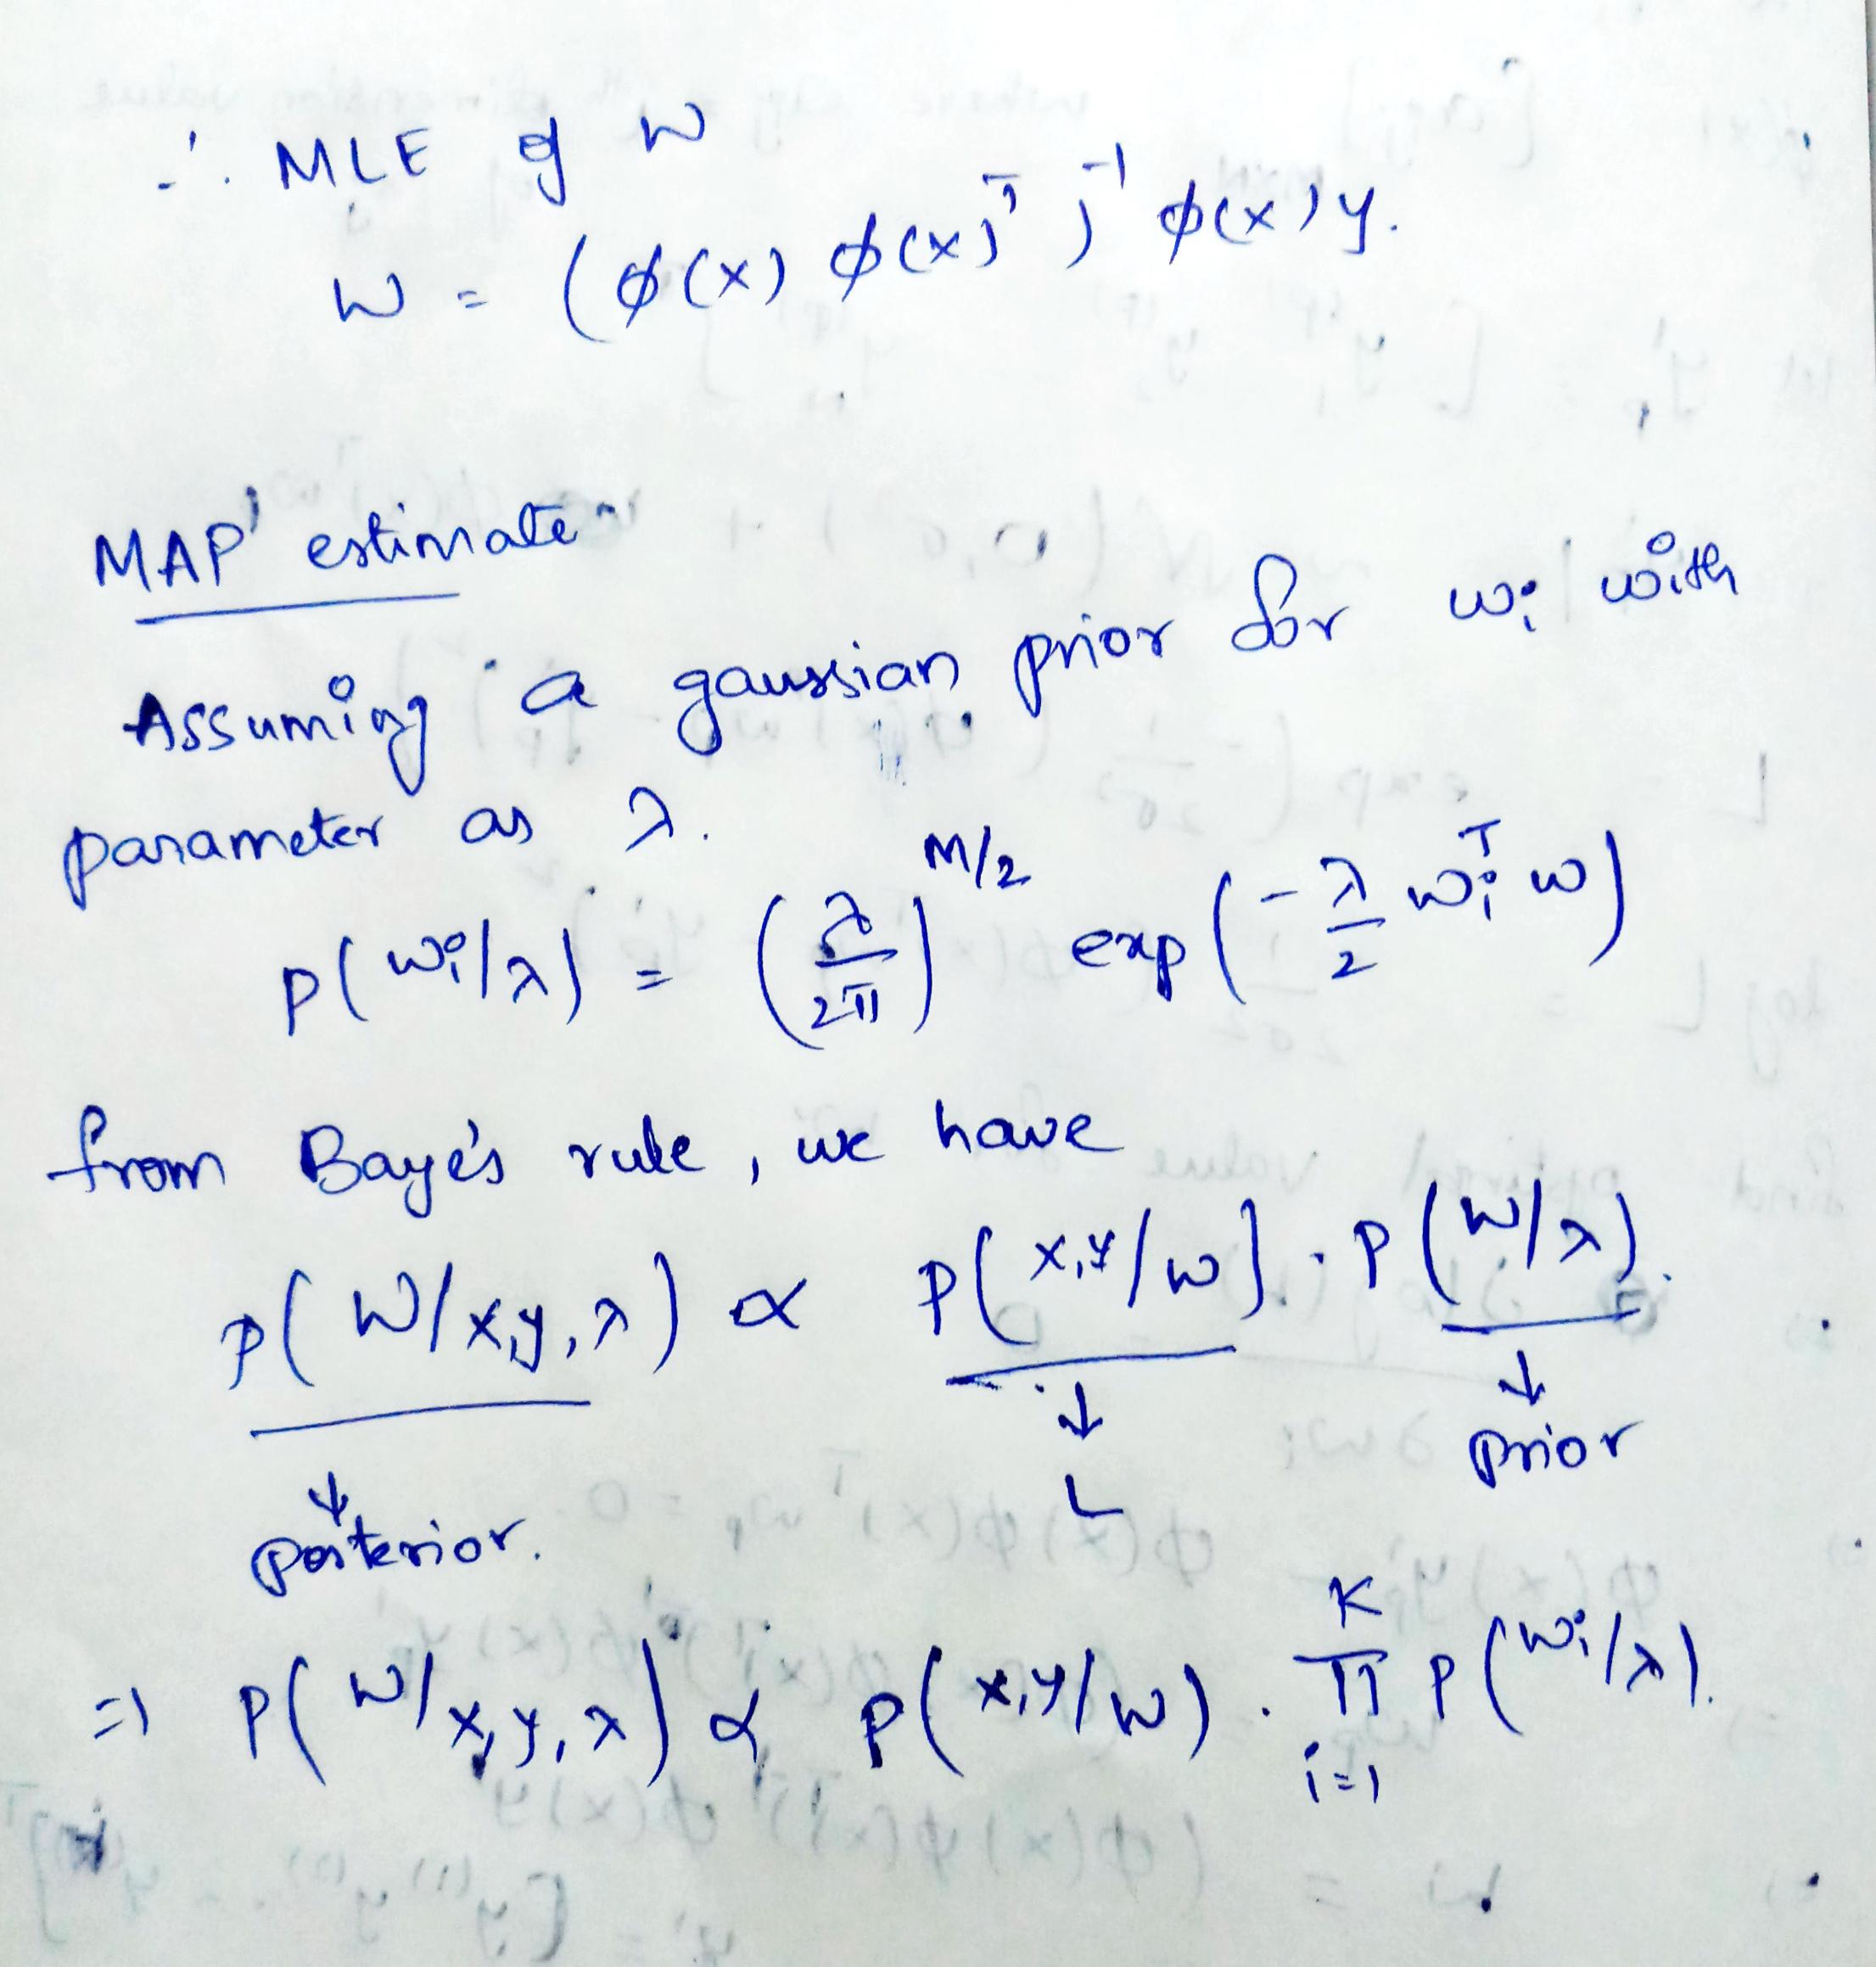 ∴ MLE of W
W = (φ(x) φ(x)ᵀ)⁻¹ φ(x) y.
MAP estimate
Assuming a gaussian prior for wᵢ with
parameter as λ.
P(wᵢ/λ) = (λ/2π)^(M/2) exp(-λ/2 wᵢᵀ w)
from Baye's rule, we have
P(W/x,y,λ) ∝ P(x,y/w) · P(W/λ).
↓ ↓ ↓
posterior. L prior
⇒ P(W/x,y,λ) ∝ P(x,y/W) · ∏_{i=1}^{K} P(wᵢ/λ).